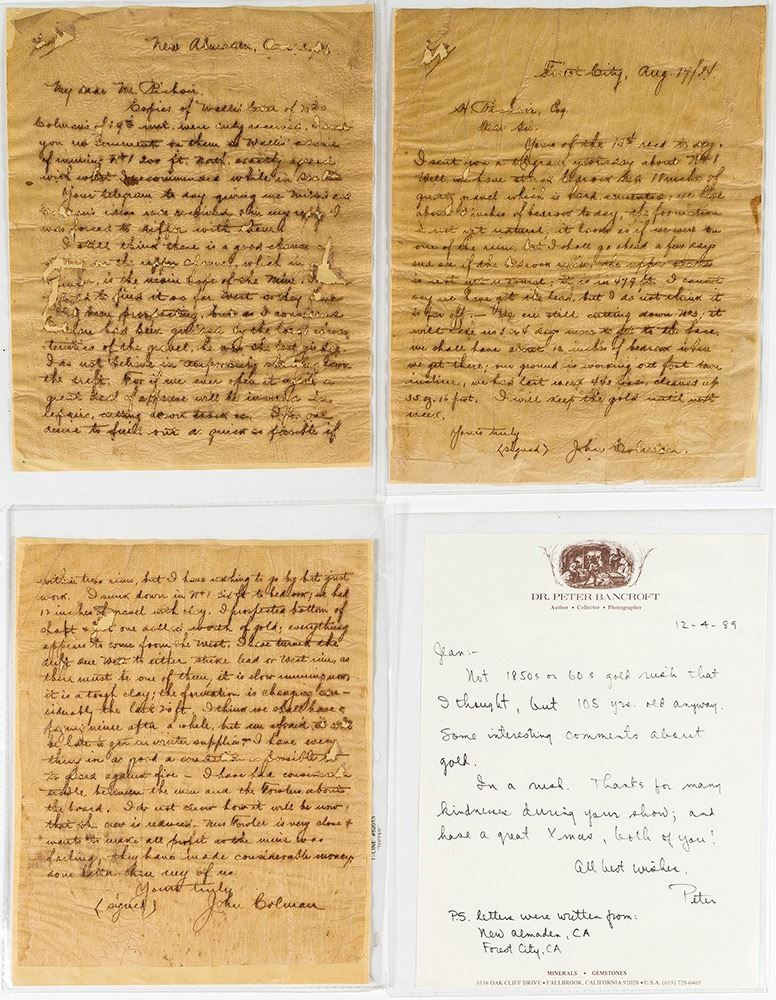 New Almaden,
My dear Mr.
Copies of
Colman's of 19th inst. were duly received. I
you no comment on them as Wallis'
of running No 1 200 ft. North, exactly agreed
with what I recommended while in
Your telegram to day giving me
views was received & in my reply I
was forced to differ with them.
I still think there is a good chance
on the upper channel, which in
is the main hope of the mine.
to find it as far West as they have
been prospecting, but as I considered
had been guided by the
of the gravel, he was the best judge.
I do not believe in temporarily
the drift. For if we ever open it again a
great deal of expense will be incurred in
repairs, cutting down track &c. I for one
desire to find out as quick as possible if
Forest City, Aug. 19/84.
Esq.
Dear Sir.
Yours of the 15th recd to day.
I sent you a telegram yesterday about No 1
Well, we have struck bedrock has 18 inches of
quartz gravel which is hard cemented; we have
about 2 inches of bedrock to day, the formation
is not yet natural, it looks as if we were on
one of the rims, but I shall go ahead a few days
and see if the bedrock
is not yet natural; it is in 479 ft. I cannot
say we have got the lead, but I do not think it
is far off. — We are still cutting down No 3, it
will take us 3 or 4 days more to get to the face,
we shall have about 12 inches of bedrock when
we get there; our ground is working out fast
we had last week 442 cleaned up
35 oz. 16 pwt. I will keep the gold until next
week.
Yours truly
(signed) John Colman.
within two rims, but I have nothing to go by but just
work. I sunk down in No 1 six ft to bedrock; we had
12 inches of gravel with clay. I prospected bottom of
shaft & got one dollars worth of gold; everything
appears to come from the West. I have turned the
drift due West to either strike lead or West rim, as
there must be one of them, it is slow running now
it is a tough clay; the formation is changing con-
siderably the last 20 ft. I think we shall have a
paying mine after a while, but am afraid it will
be late to get in winter supplies. I have every
thing in as good a condition as possible
to guard against fire — I have had considerable
trouble between the mine and the Fowlers about
the board. I do not know how it will be now
that the crew is reduced. Mrs Fowler is very close &
wants to make all profit as the mine was
failing; they have made considerable money,
done better than any of us.
Yours truly
(signed) John Colman
DR. PETER BANCROFT
Author • Collector • Photographer
12-4-89
Jean:-
Not 1850s or 60s gold rush that
I thought, but 105 yrs. old anyway.
Some interesting comments about
gold.
In a rush. Thanks for many
kindnesses during your show; and
have a great Xmas, both of you!
All best wishes,
Peter
P.S. letters were written from:
New Almaden, CA
Forest City, CA
MINERALS • GEMSTONES
3538 OAK CLIFF DRIVE • FALLBROOK, CALIFORNIA 92028 • U.S.A. (619) 728-6463